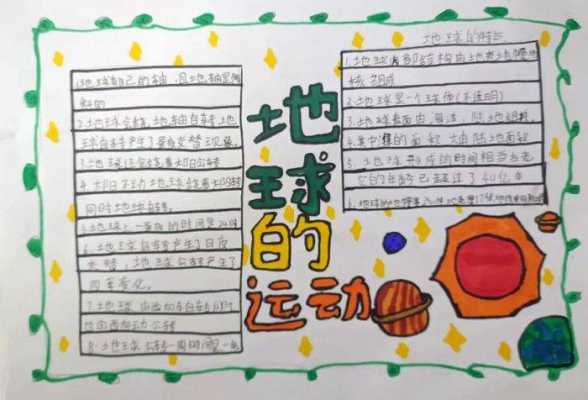 地球的
运动
地球的特点
1.地球有自己的轴，且地轴是倾
斜的
2.地球会绕地轴自转，地
球自转产生了昼夜交替现象。
3.地球还会绕着太阳公转
4.太阳不动地球绕着太阳公转
同时地球自转。
5.地球上一昼夜的时间是24小时
6.地球自转产生了昼夜
交替，地球公转产生了
四季变化。
7.地球自西向东自转，同时
自西向东公转
8.地球公转一周的时间是一年
1.地球内部结构由地表地幔地
核组成
2.地球是一个球体(不透明)
3.地球表面由海洋，陆地组成。
4.其中海洋的面积大于陆地面积
5.地球形成的时间相当长
它的年龄已超过了40亿年
6.地球